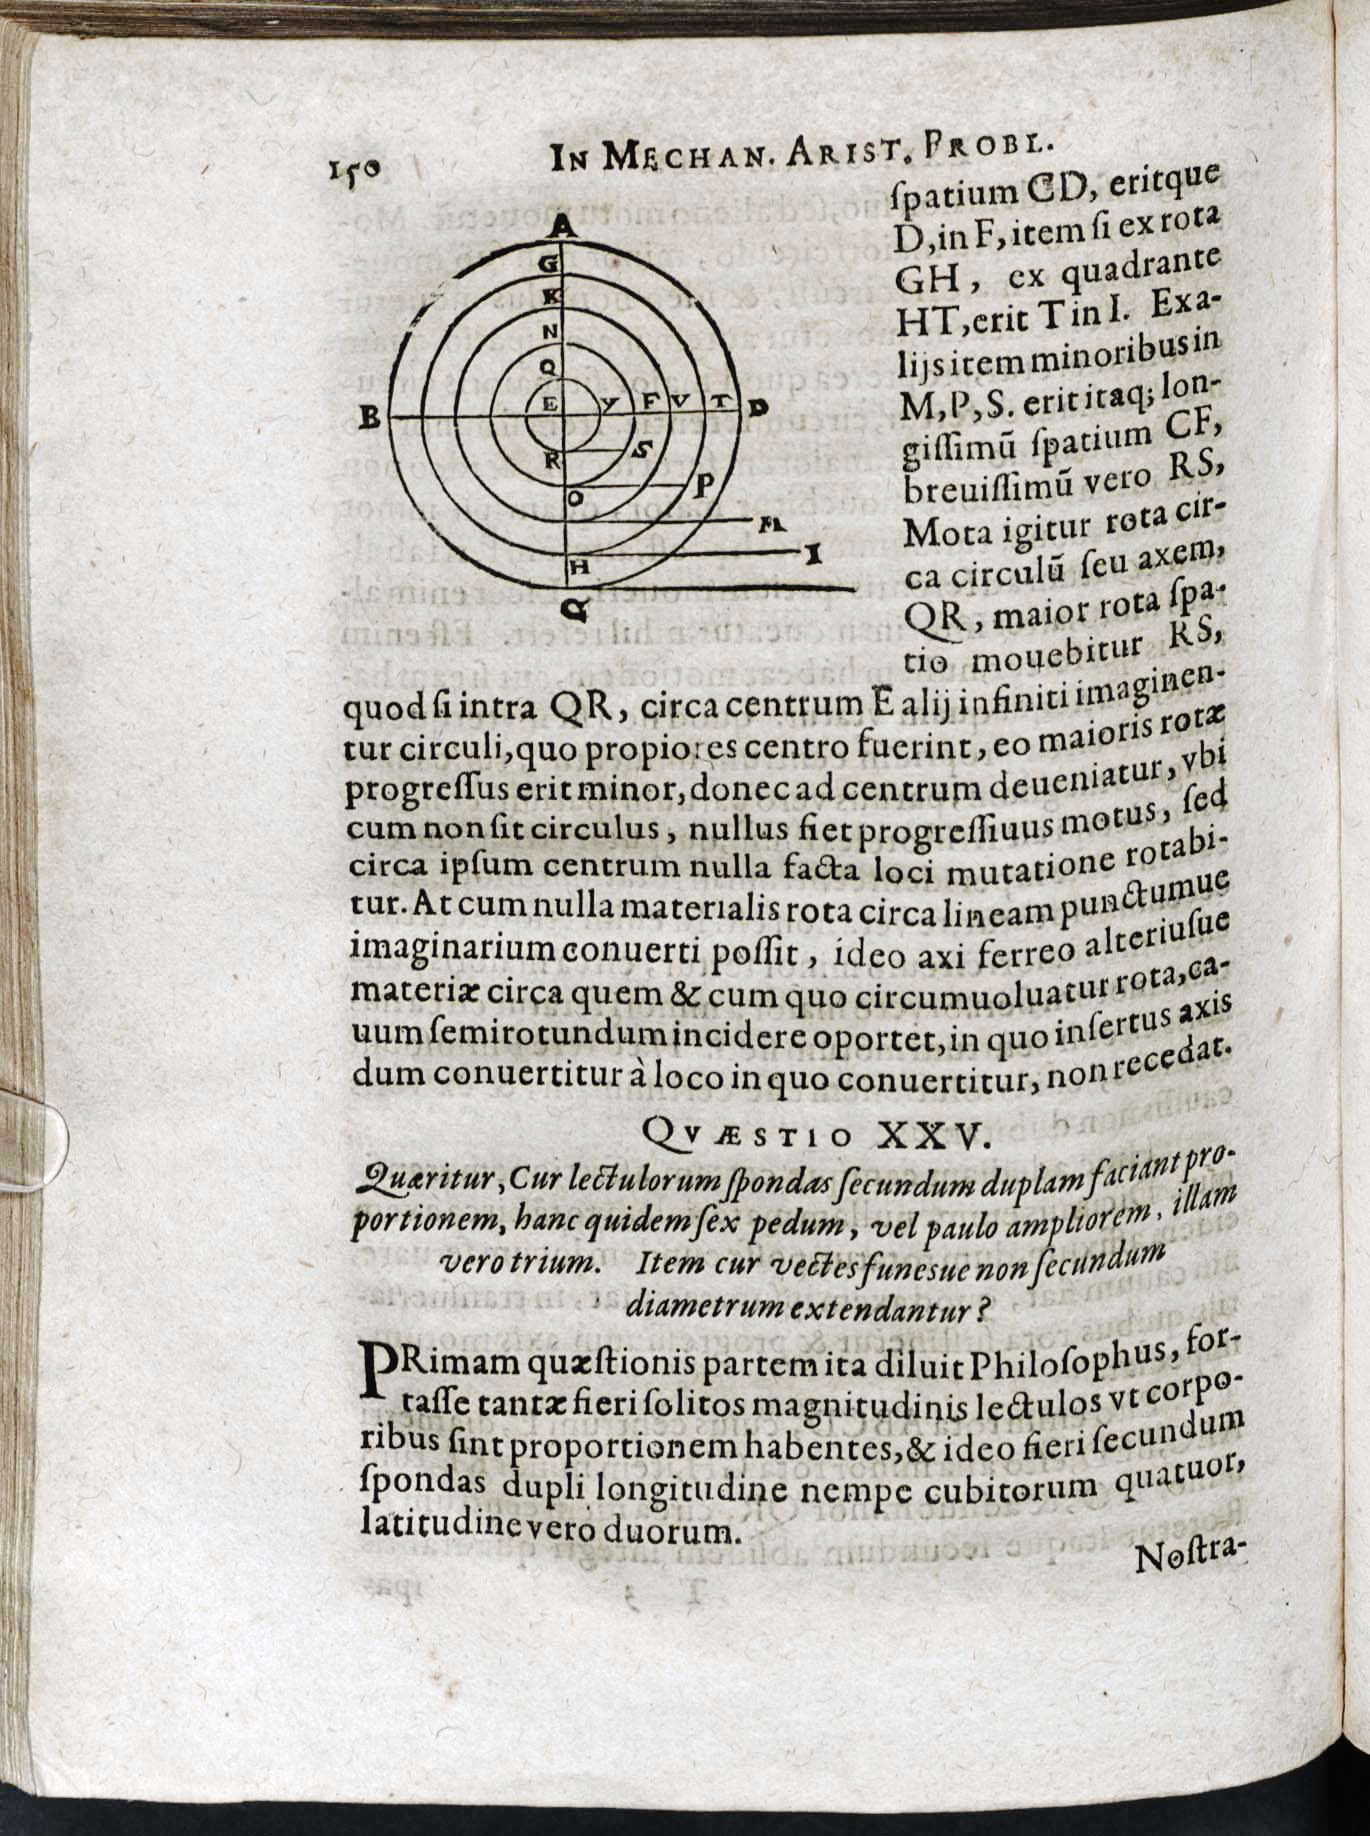 150 IN MECHAN. ARIST. PROBL.
A
G
K
N
Q
B E Y F V T D
R S
O P
M
H I
G
ſpatium CD, eritque
D, in F, item ſi ex rota
GH, ex quadrante
HT, erit T in I. Exa-
lijs item minoribus in
M, P, S. erit itaq; lon-
giſſimũ ſpatium CF,
breuiſſimũ vero RS,
Mota igitur rota cir-
ca circulũ ſeu axem,
QR, maior rota ſpa-
tio mouebitur RS,
quod ſi intra QR, circa centrum E alij infiniti imaginen-
tur circuli, quo propiores centro fuerint, eo maioris rotæ
progreſſus erit minor, donec ad centrum deueniatur, vbi
cum non ſit circulus, nullus fiet progreſſiuus motus, ſed
circa ipſum centrum nulla facta loci mutatione rotabi-
tur. At cum nulla materialis rota circa lineam punctumue
imaginarium conuerti poſſit, ideo axi ferreo alteriuſue
materiæ circa quem & cum quo circumuoluatur rota, ca-
uum ſemirotundum incidere oportet, in quo inſertus axis
dum conuertitur à loco in quo conuertitur, non recedat.
QVÆSTIO XXV.
Quæritur, Cur lectulorum ſpondas ſecundum duplam faciant pro-
portionem, hanc quidem ſex pedum, vel paulo ampliorem, illam
vero trium. Item cur vectes funesue non ſecundum
diametrum extendantur?
PRimam quæſtionis partem ita diluit Philoſophus, for-
taſſe tantæ fieri ſolitos magnitudinis lectulos vt corpo-
ribus ſint proportionem habentes, & ideo fieri ſecundum
ſpondas dupli longitudine nempe cubitorum quatuor,
latitudine vero duorum.
Noſtra-